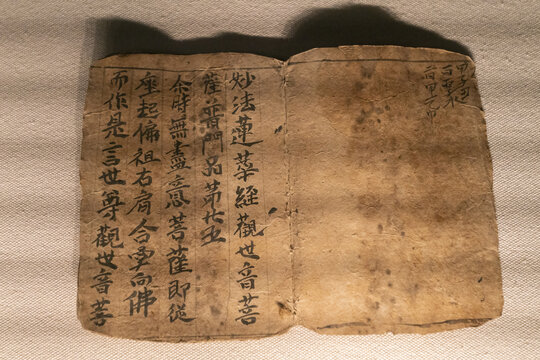 妙法蓮華經觀世音菩
薩普門品第廿五
尒時無盡意菩薩即從
座起偏袒右肩合掌向佛
而作是言世尊觀世音菩